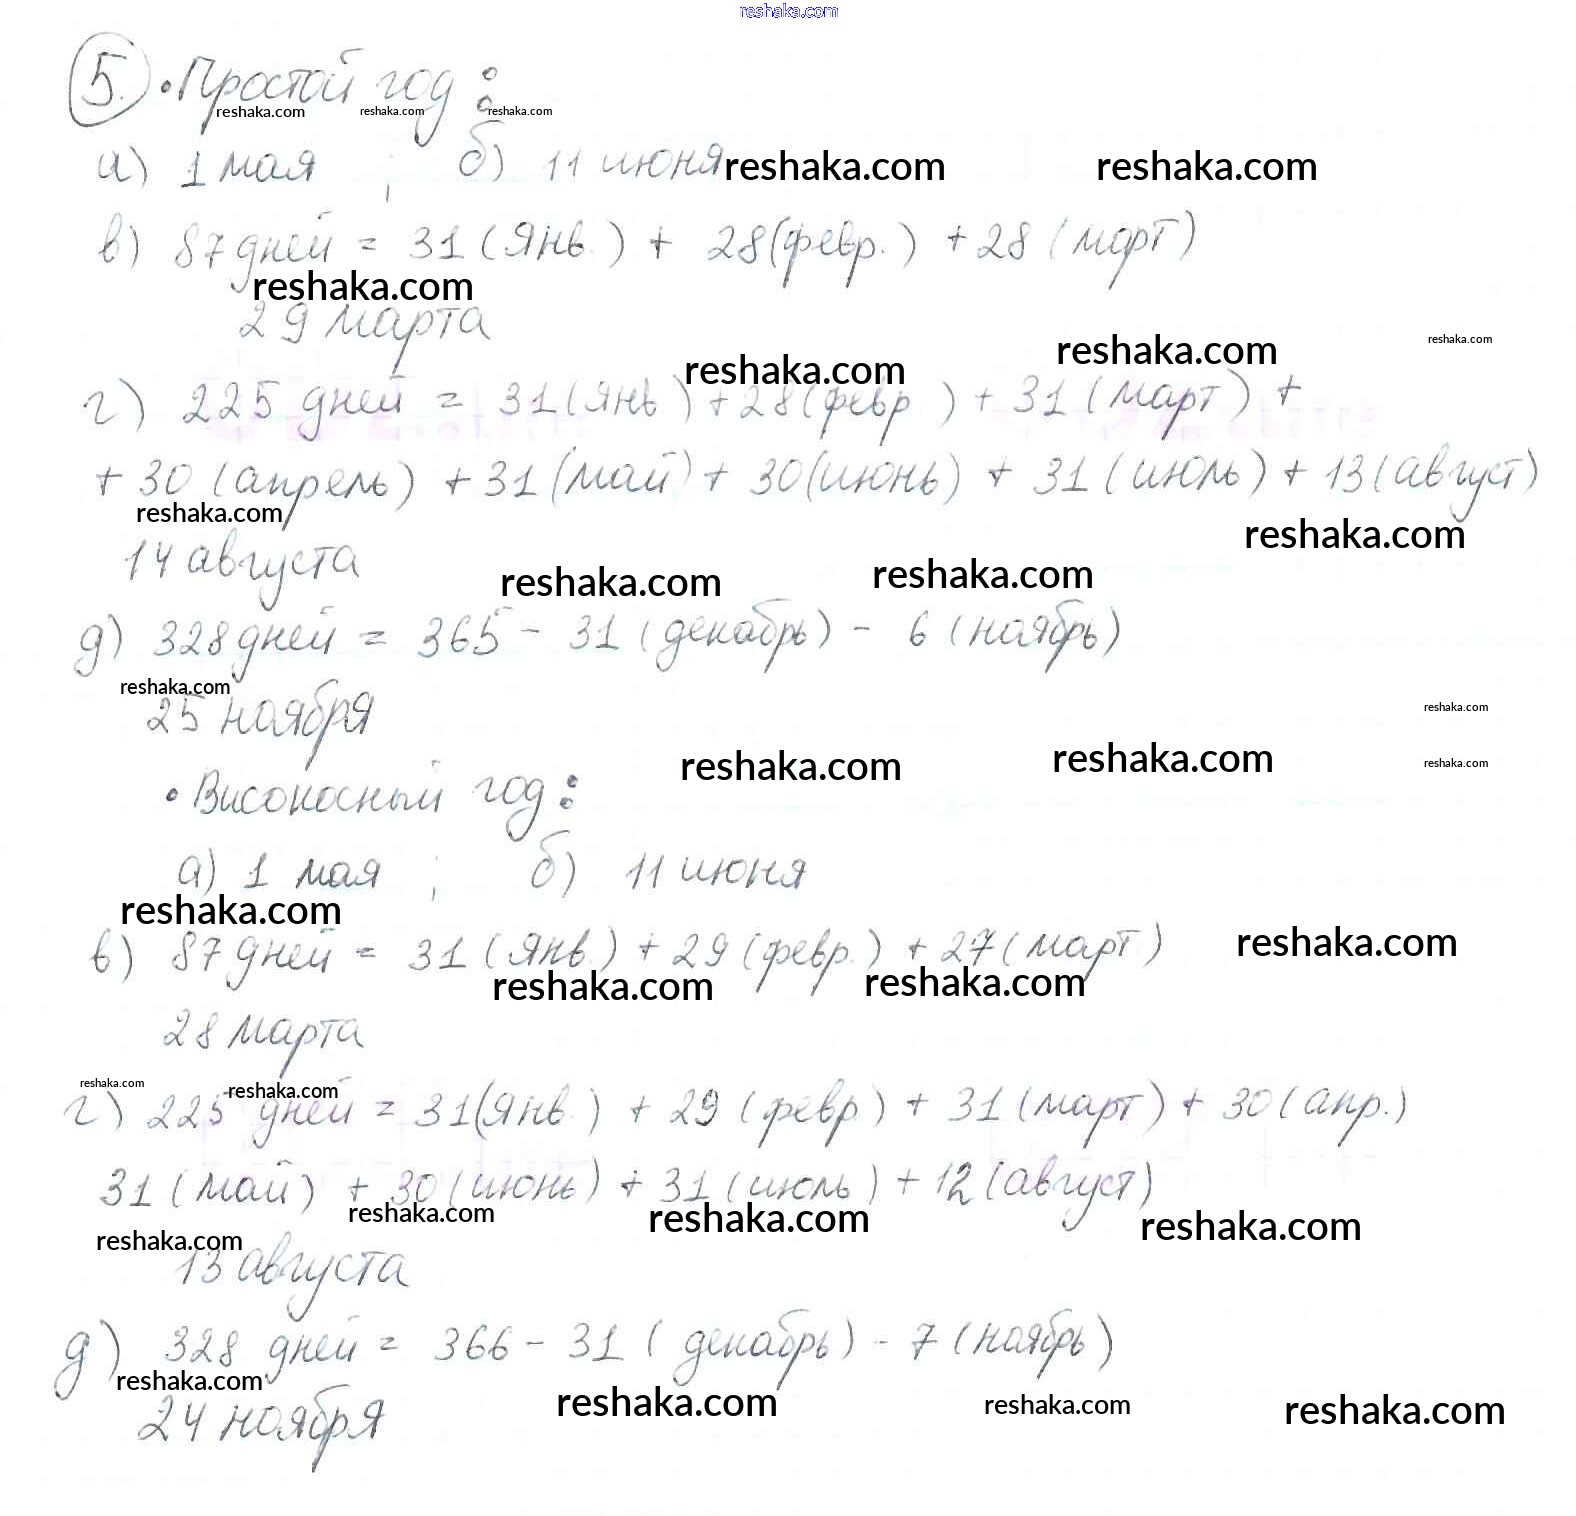 reshaka.com
5. • Простой год :
reshaka.com reshaka.com reshaka.com
а) 1 мая ; б) 11 июня reshaka.com reshaka.com
в) 87 дней = 31 (янв.) + 28 (февр.) + 28 (март)
reshaka.com
29 марта
reshaka.com reshaka.com reshaka.com
г) 225 дней = 31 (янв.) + 28 (февр.) + 31 (март) +
+ 30 (апрель) + 31 (май) + 30 (июнь) + 31 (июль) + 13 (август)
reshaka.com reshaka.com
14 августа
reshaka.com reshaka.com
д) 328 дней = 365 - 31 (декабрь) - 6 (ноябрь)
reshaka.com
25 ноября reshaka.com
reshaka.com reshaka.com reshaka.com
• Високосный год :
а) 1 мая ; б) 11 июня
reshaka.com
в) 87 дней = 31 (янв.) + 29 (февр.) + 27 (март) reshaka.com
reshaka.com reshaka.com
28 марта
reshaka.com reshaka.com
г) 225 дней = 31 (янв.) + 29 (февр.) + 31 (март) + 30 (апр.)
31 (май) + 30 (июнь) + 31 (июль) + 12 (август)
reshaka.com reshaka.com reshaka.com
reshaka.com
13 августа
д) 328 дней = 366 - 31 (декабрь) - 7 (ноябрь)
reshaka.com
24 ноября reshaka.com reshaka.com reshaka.com